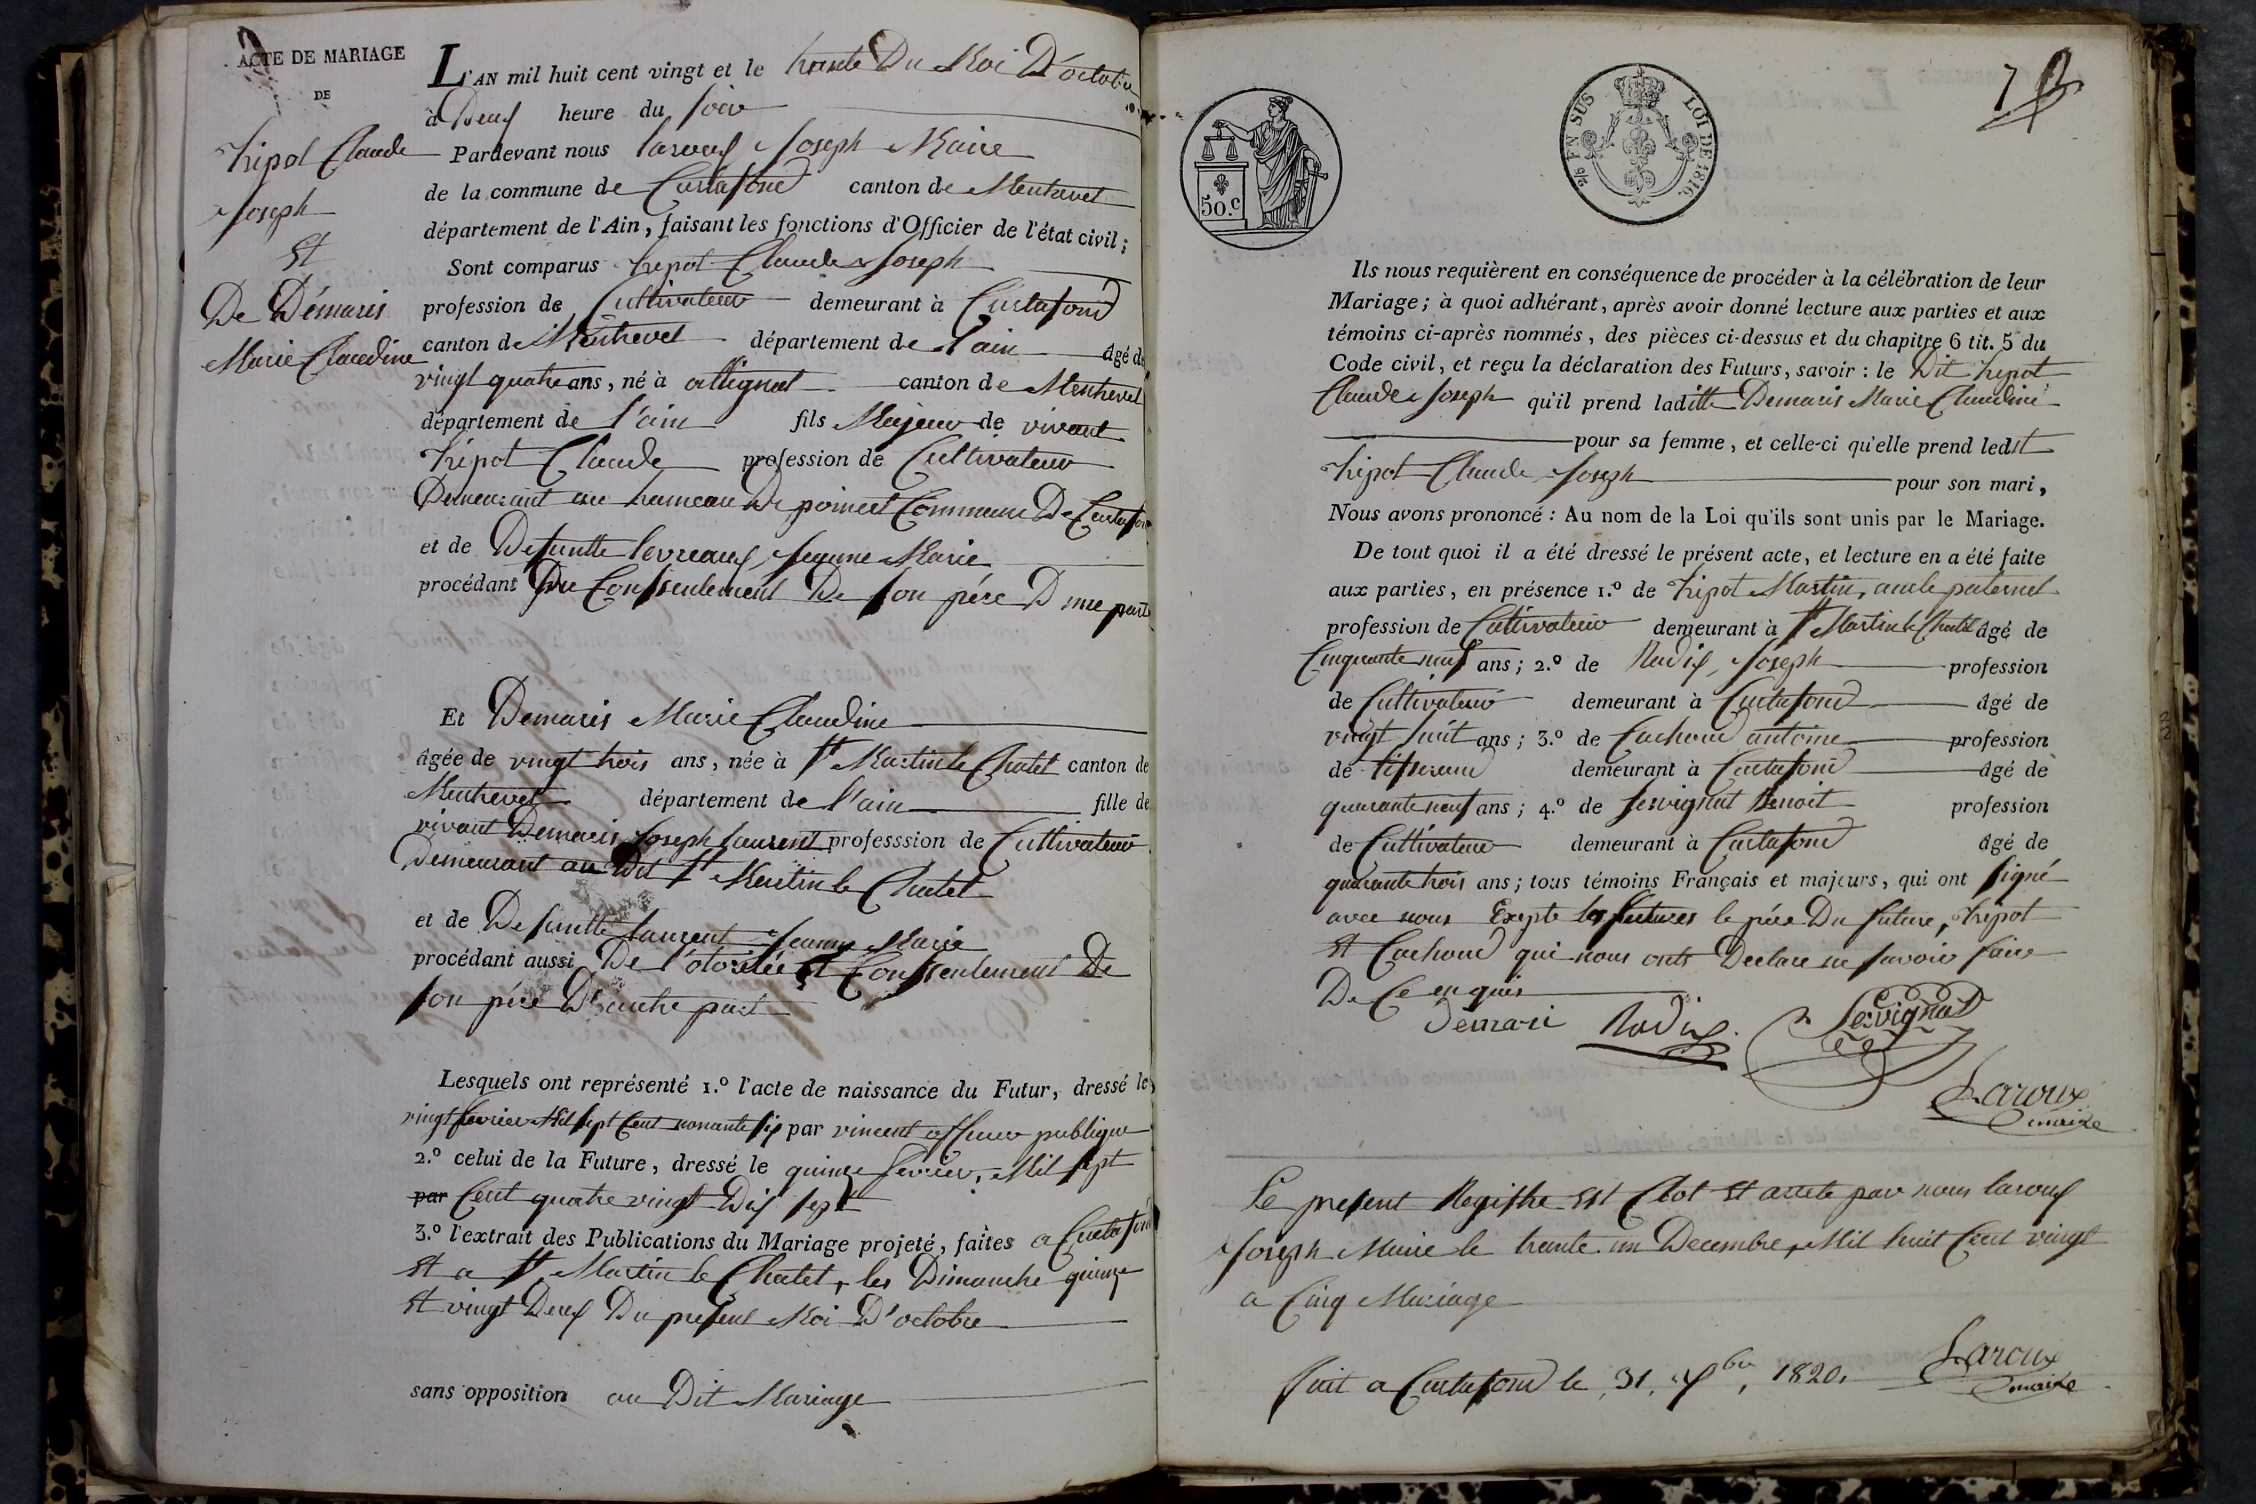 ACTE DE MARIAGE
DE
Tripot Claude
Joseph
Et
De Démaris
Marie Claudine
L'AN mil huit cent vingt et le trente Du Moi D'octobre
à Deux heure du soir
Pardevant nous laroux Joseph Maire
de la commune de Curtafond canton de Montrevel
département de l'Ain, faisant les fonctions d'Officier de l'état civil;
Sont comparus Tripot Claude Joseph
profession de Cultivateur demeurant à Curtafond
canton de Montrevel département de l'ain âgé de
vingt quatre ans, né à attignat canton de Montrevel
département de l'ain fils Majeur de vivant
Tripot Claude profession de Cultivateur
Demeurant au hameau De Commune De Curtafond
et de Defuntte levreaux Jeanne Marie
procédant Du Conssentement De son père D'une part
Et Demaris Marie Claudine
âgée de vingt trois ans, née à St Martin le Chatel canton de
Montrevel département de l'ain fille de
vivant Demaris Joseph laurent professsion de Cultivateur
Demeurant au Dit St Martin le Chatel
et de Defuntte laurent Jeanne Marie
procédant aussi De l'otorité Et Conssentement De
son père D'autre part
Lesquels ont représenté 1.º l'acte de naissance du Futur, dressé le
vingt fevrier Mil sept Cent nonante six par vincent officier publique
2.º celui de la Future, dressé le quinze fevrier, Mil sept
par Cent quatre vingt Dix sept
3.º l'extrait des Publications du Mariage projeté, faites a Curtafond
Et a St Martin le Chatel, les Dimanche quinze
Et vingt Deux Du present Moi D'octobre
sans opposition au Dit Mariage
7
50.c
EN SUS
LOI DE 1816.
Ils nous requièrent en conséquence de procéder à la célébration de leur
Mariage; à quoi adhérant, après avoir donné lecture aux parties et aux
témoins ci-après nommés, des pièces ci-dessus et du chapitre 6 tit. 5 du
Code civil, et reçu la déclaration des Futurs, savoir : le Dit Tripot
Claude Joseph qu'il prend laditte Demaris Marie Claudine
pour sa femme, et celle-ci qu'elle prend ledit
Tripot Claude Joseph pour son mari,
Nous avons prononcé : Au nom de la Loi qu'ils sont unis par le Mariage.
De tout quoi il a été dressé le présent acte, et lecture en a été faite
aux parties, en présence 1.º de Tripot Martin, oncle paternel
profession de Cultivateur demeurant à St Martin le Chatel âgé de
Cinquante neuf ans; 2.º de Rudix Joseph profession
de Cultivateur demeurant à Curtafond âgé de
vingt huit ans; 3.º de Cachoud antoine profession
de tisserand demeurant à Curtafond âgé de
quarante neuf ans; 4.º de Jesvignat Benoit profession
de Cultivateur demeurant à Curtafond âgé de
quarante trois ans; tous témoins Français et majeurs, qui ont signé
avec nous Exepte les futures le père Du future, tripot
Et Cachoud qui nous onts Declare ne savoir faire
De Ce en quis
Demari Rudix Jesvignat
Laroux
maire
Le present Registre Est Clot Et arrete par nous laroux
Joseph Maire le trante un Decembre, Mil huit Cent vingt
a Cinq Mariage
fait a Curtafond le 31, Xbre, 1820, Laroux
maire